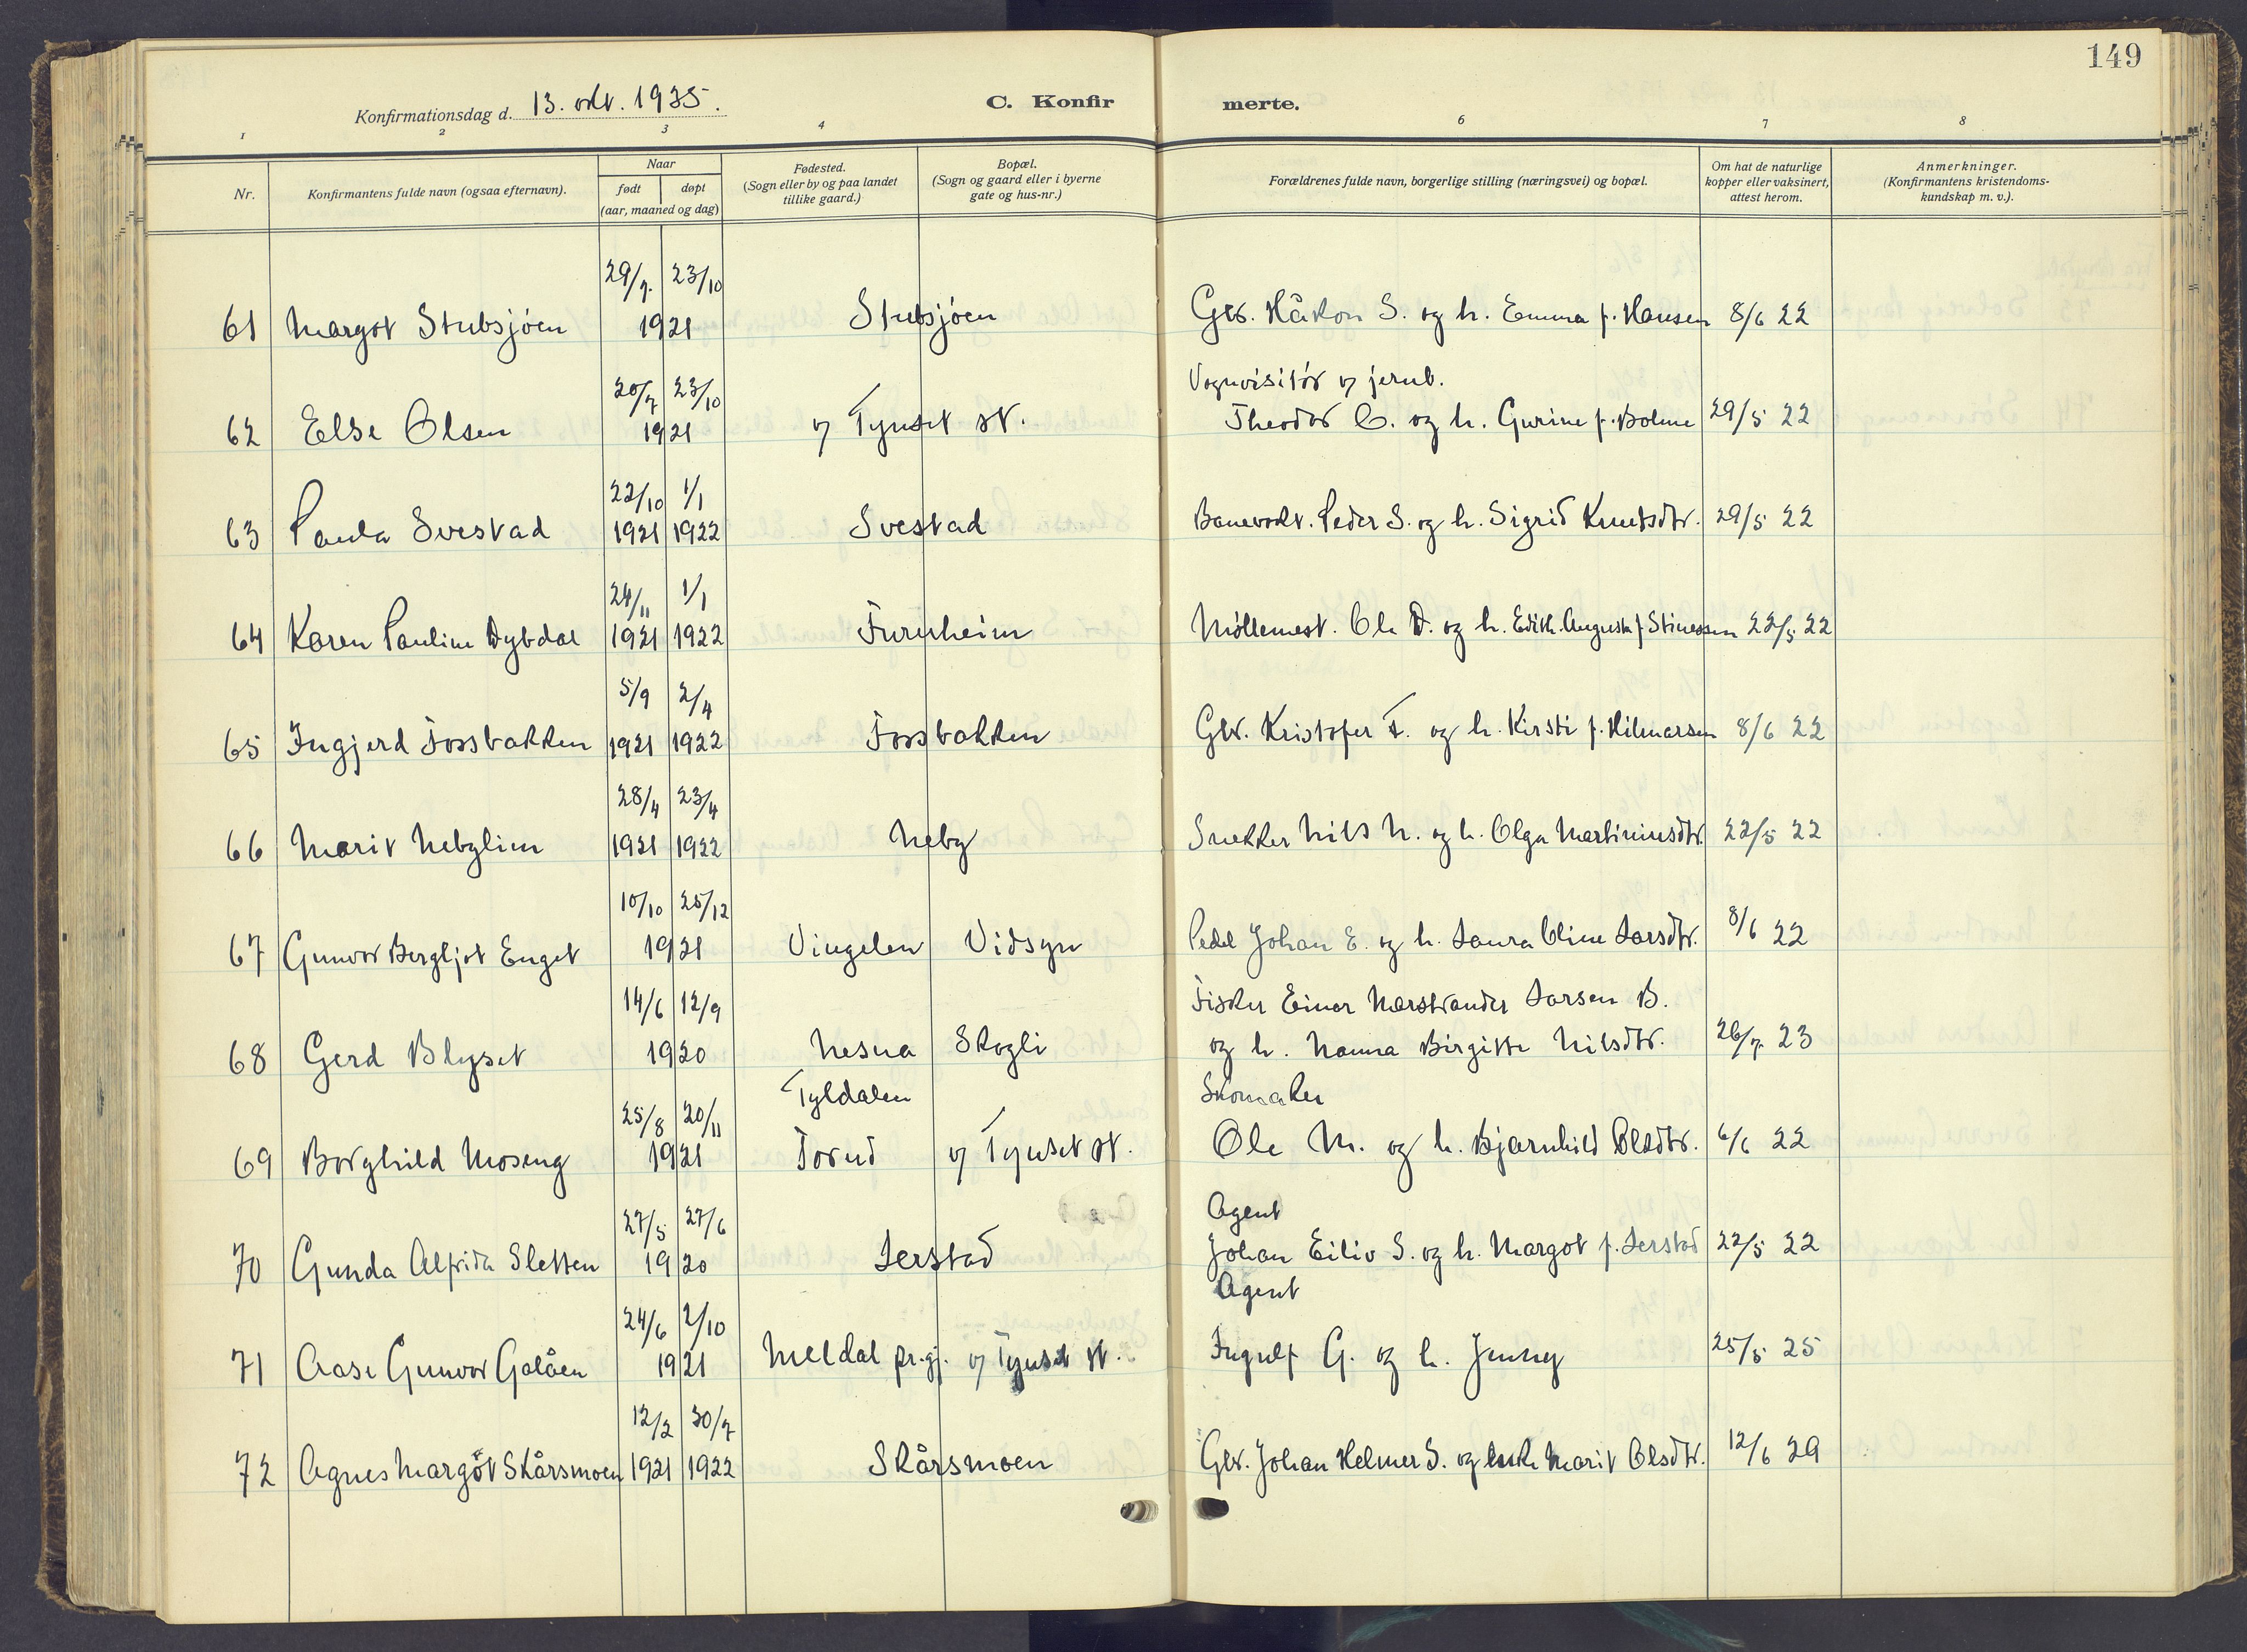 149
Konfirmationsdag d. 13. okt. 1935.
C. Konfirmerte.
1 2 3 4 6 7 8
Nr. Konfirmantens fulde navn (ogsaa efternavn). Naar født døpt (aar, maaned og dag) Fødested. (Sogn eller by og paa landet tillike gaard.) Bopæl. (Sogn og gaard eller i byerne gate og hus-nr.) Forældrenes fulde navn, borgerlige stilling (næringsvei) og bopæl. Om hat de naturlige kopper eller vaksinert, attest herom. Anmerkninger. (Konfirmantens kristendoms-kundskap m. v.).
29/7. 23/10
61 Margot Stubsjøen 1921 Stubsjøen Gbr. Håkon S. og h. Emma f. Hansen 8/6 22
20/7 23/10 Vognvisitør v/ jernb.
62 Else Olsen 1921 v/ Tynset st. Theodor O. og h. Gurine f. Bolme 29/5 22
22/10 1/1
63 Paula Svestad 1921 1922 Svestad Banevokt. Peder S. og h. Sigrid Knutsdtr. 29/5 22
24/11 1/1
64 Karen Pauline Dybdal 1921 1922 Furuheim Møllemest. Ole D. og h. Edith Augusta f. Stinessen 22/5 22
5/9 2/4
65 Ingjerd Fossbakken 1921 1922 Fossbakken Gbr. Kristofer F. og h. Kirsti f. Hilmarsen 8/6 22
28/4 23/4
66 Marit Nebylien 1921 1922 Neby Snekker Nils N. og h. Olga Martiniusdtr. 22/5 22
10/10 25/12
67 Gunvor Bergljot Enget 1921 Vingelen Vidsyn Pedel Johan E. og h. Laura Oline Larsdtr. 8/6 22
14/6 12/9 Fisker Einar Narstrander Larsen B.
68 Gerd Blyset 1920 Nesna Skogli og h. Hanna Birgitte Nilsdtr. 26/7 23
25/8 20/11 Tyldalen Skomaker
69 Borghild Moseng 1921 Torud v/ Tynset st. Ole M. og h. Bjarnhild Olsdtr. 6/6 22
27/5 27/6 Agent
70 Gunda Alfrida Sletten 1920 Jerstad Johan Eiliv S. og h. Margot f. Jerstad 22/5 22
24/6 2/10 Agent
71 Aase Gunvor Galåen 1921 Meldal pr.gj. v/ Tynset st. Ingulf G. og h. Jenny 25/5 25
12/2 30/7
72 Agnes Margot Skårsmoen 1921 1922 Skårsmoen Gbr. Johan Helmer S. og Marit Olsdtr. 12/6 29